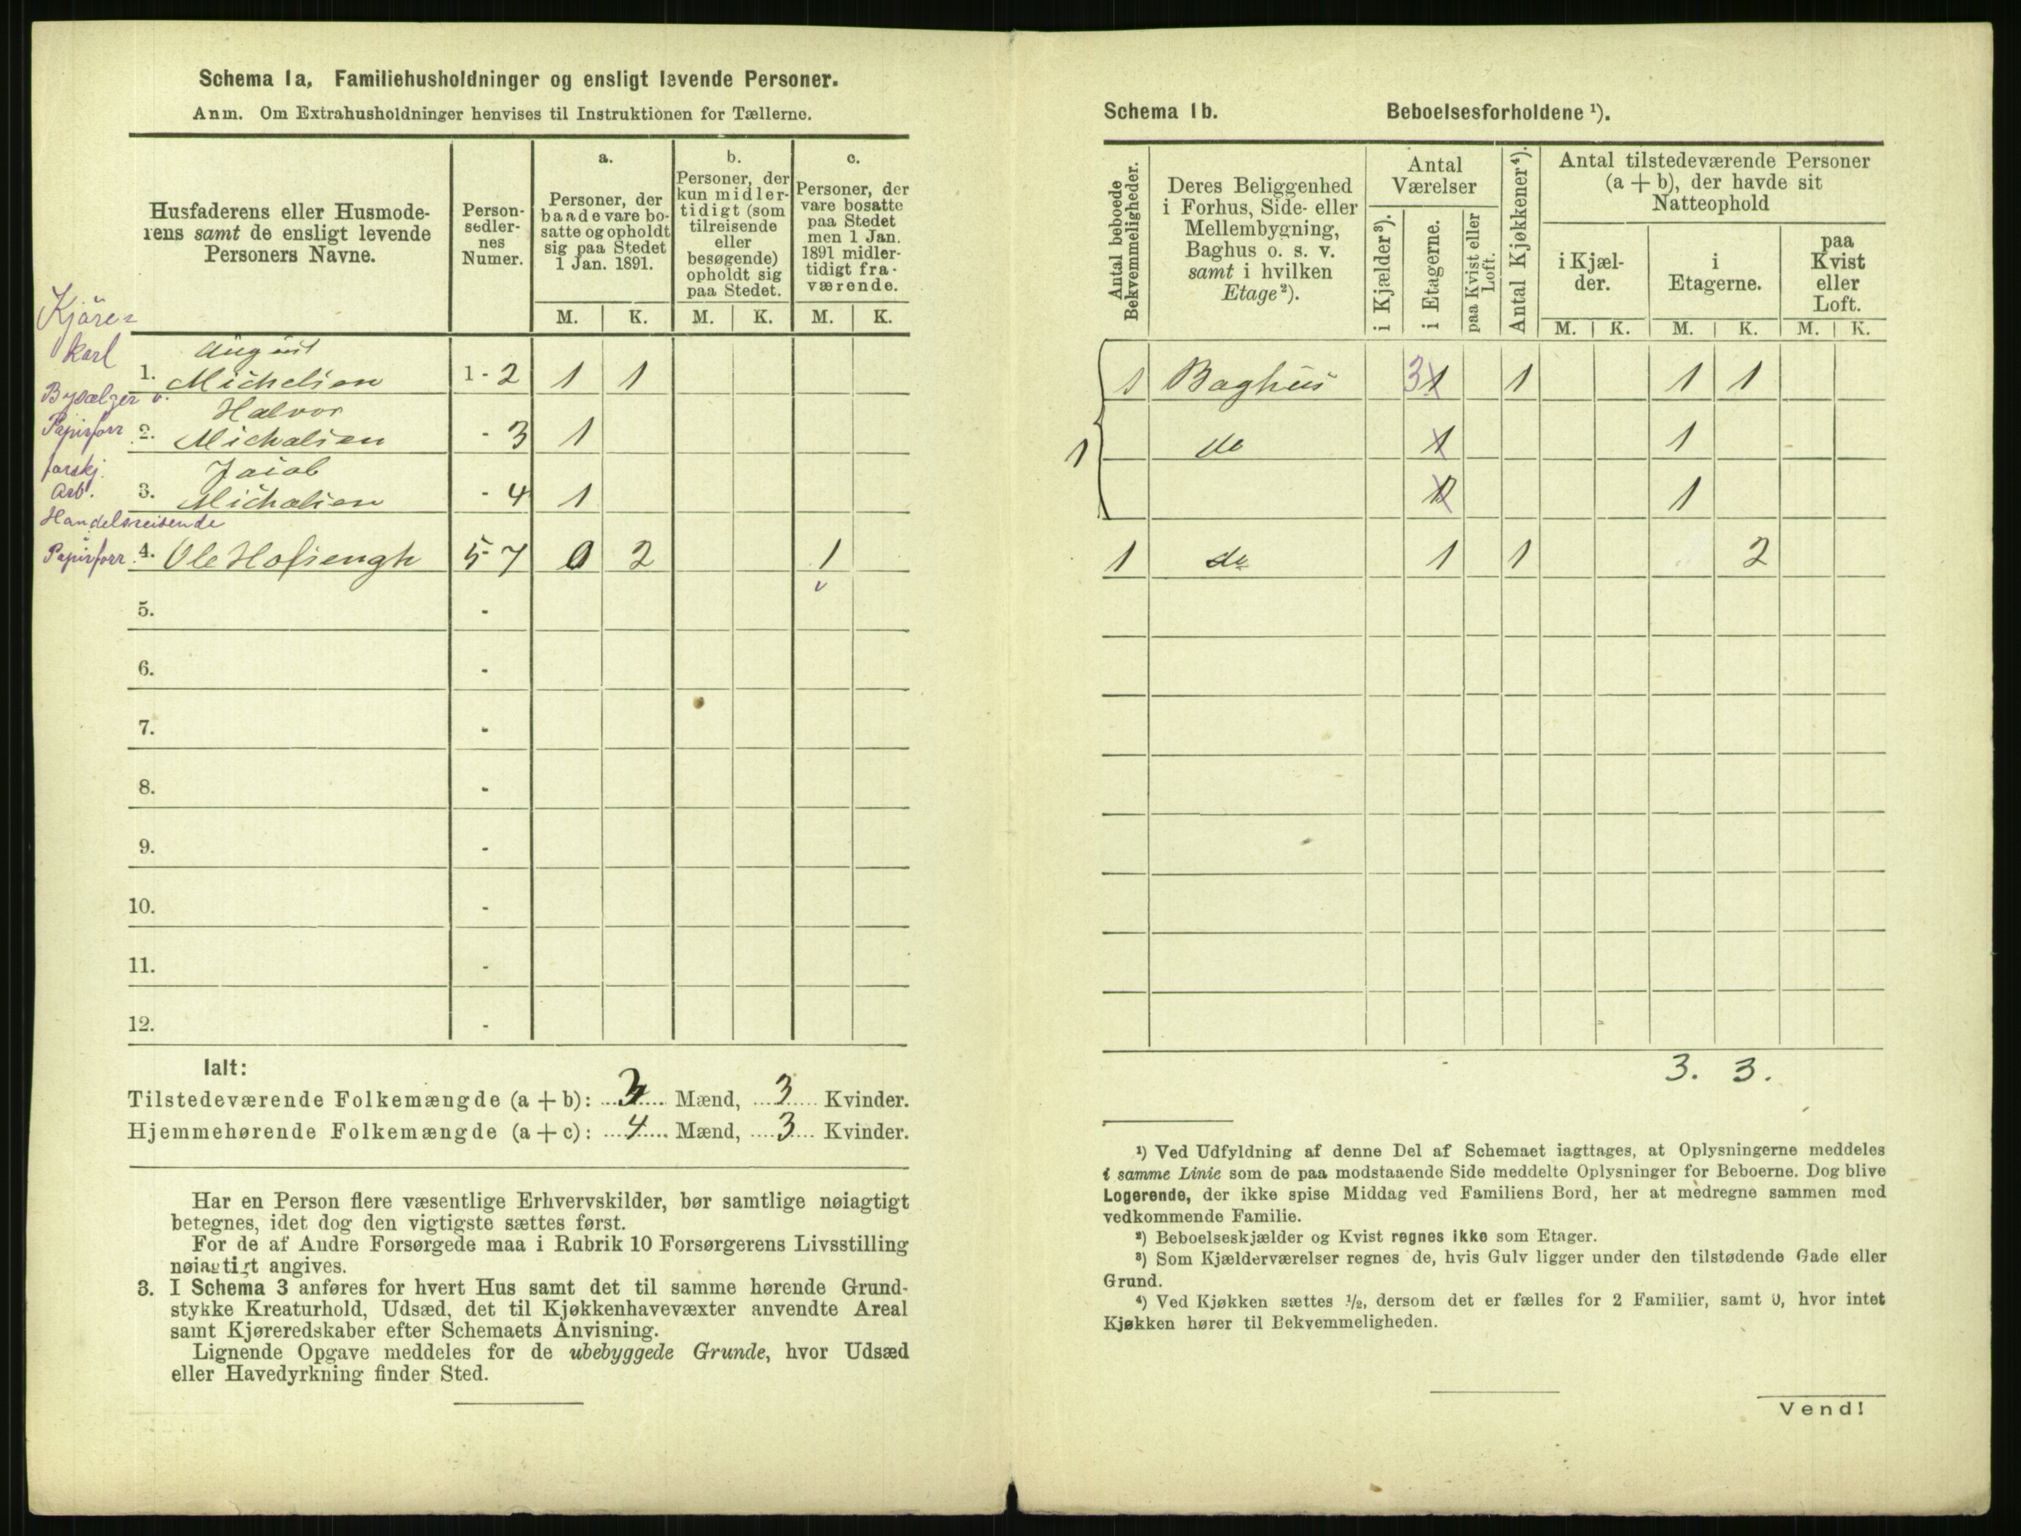 Schema 1a, Familiehusholdninger og ensligt levende Personer.
Anm. Om Extrahusholdninger henvises til Instruktionen for Tællerne.
Husfaderens eller Husmode-
rens samt de ensligt levende
Personers Navne.
Person-
sedler-
nes
Numer.
a.
Personer, der
baade vare bo-
satte og opholdt
sig paa Stedet
1 Jan. 1891.
b.
Personer, der
kun midler-
tidigt (som
tilreisende
eller
besøgende)
opholdt sig
paa Stedet.
c.
Personer, der
vare bosatte
paa Stedet
men 1 Jan.
1891 midler-
tidigt fra-
værende.
M. K. M. K. M. K.
Kjøre-
karl
August
1. Michelsen 1 - 2 1 1
Bysælger v.
Halvor
Papirforr 2. Michalsen - 3 1
forskj.
Jacob
Arb. 3. Michalsen - 4 1
Handelsreisende
i
Papirforr. 4. Ole Hofsengh 5 - 7 0 2 1
v
5. -
6. -
7. -
8. -
9. -
10. -
11. -
12. -
Ialt:
Tilstedeværende Folkemængde (a + b): 3 Mænd, 3 Kvinder.
Hjemmehørende Folkemængde (a + c): 4 Mænd, 3 Kvinder.
Har en Person flere væsentlige Erhvervskilder, bør samtlige nøiagtigt
betegnes, idet dog den vigtigste sættes først.
For de af Andre Forsørgede maa i Rubrik 10 Forsørgerens Livsstilling
nøiagtigt angives.
3. I Schema 3 anføres for hvert Hus samt det til samme hørende Grund-
stykke Kreaturhold, Udsæd, det til Kjøkkenhavevæxter anvendte Areal
samt Kjøreredskaber efter Schemaets Anvisning.
Lignende Opgave meddeles for de ubebyggede Grunde, hvor Udsæd
eller Havedyrkning finder Sted.
Schema 1b. Beboelsesforholdene ¹).
Antal beboede
Bekvemmeligheder.
Deres Beliggenhed
i Forhus, Side- eller
Mellembygning,
Baghus o. s. v.
samt i hvilken
Etage²).
Antal
Værelser
i Kjælder³).
i Etagerne.
paa Kvist eller
Loft.
Antal Kjøkkener⁴).
Antal tilstedeværende Personer
(a + b), der havde sit
Natteophold
i Kjæl-
der.
i
Etagerne.
paa
Kvist
eller
Loft.
M. K. M. K. M. K.
1 Baghus 3 1 1 1 1
1 do 1 1
1 1
1 do 1 1 2
3. 3.
¹) Ved Udfyldning af denne Del af Schemaet iagttages, at Oplysningerne meddeles
i samme Linie som de paa modstaaende Side meddelte Oplysninger for Beboerne. Dog blive
Logerende, der ikke spise Middag ved Familiens Bord, her at medregne sammen med
vedkommende Familie.
²) Beboelseskjælder og Kvist regnes ikke som Etager.
³) Som Kjælderværelser regnes de, hvis Gulv ligger under den tilstødende Gade eller
Grund.
⁴) Ved Kjøkken sættes ½, dersom det er fælles for 2 Familier, samt 0, hvor intet
Kjøkken hører til Bekvemmeligheden.
Vend!